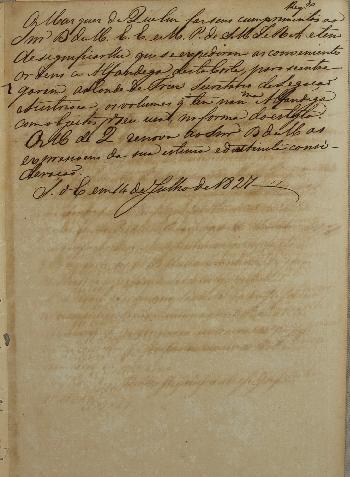 O Marquez de Queluz faz seus cumprimentos ao
Snr B de M. E. E. e M. P. de S. M. I. e R. A. e tem
de significarlhe que se expedirão as convenientes
ordens a Alfandega desta Corte, para se entre-
garem, ao Conde de Secretario da Legação
Austriaca, os volumes q tem na Alfandega
com objectos seu uso, na forma do estylo.
O M. de Q. renova ao Snr B de M as
expressoens da sua estima e distincta consi-
deração.
P. do R. em 14 de Julho de 1827